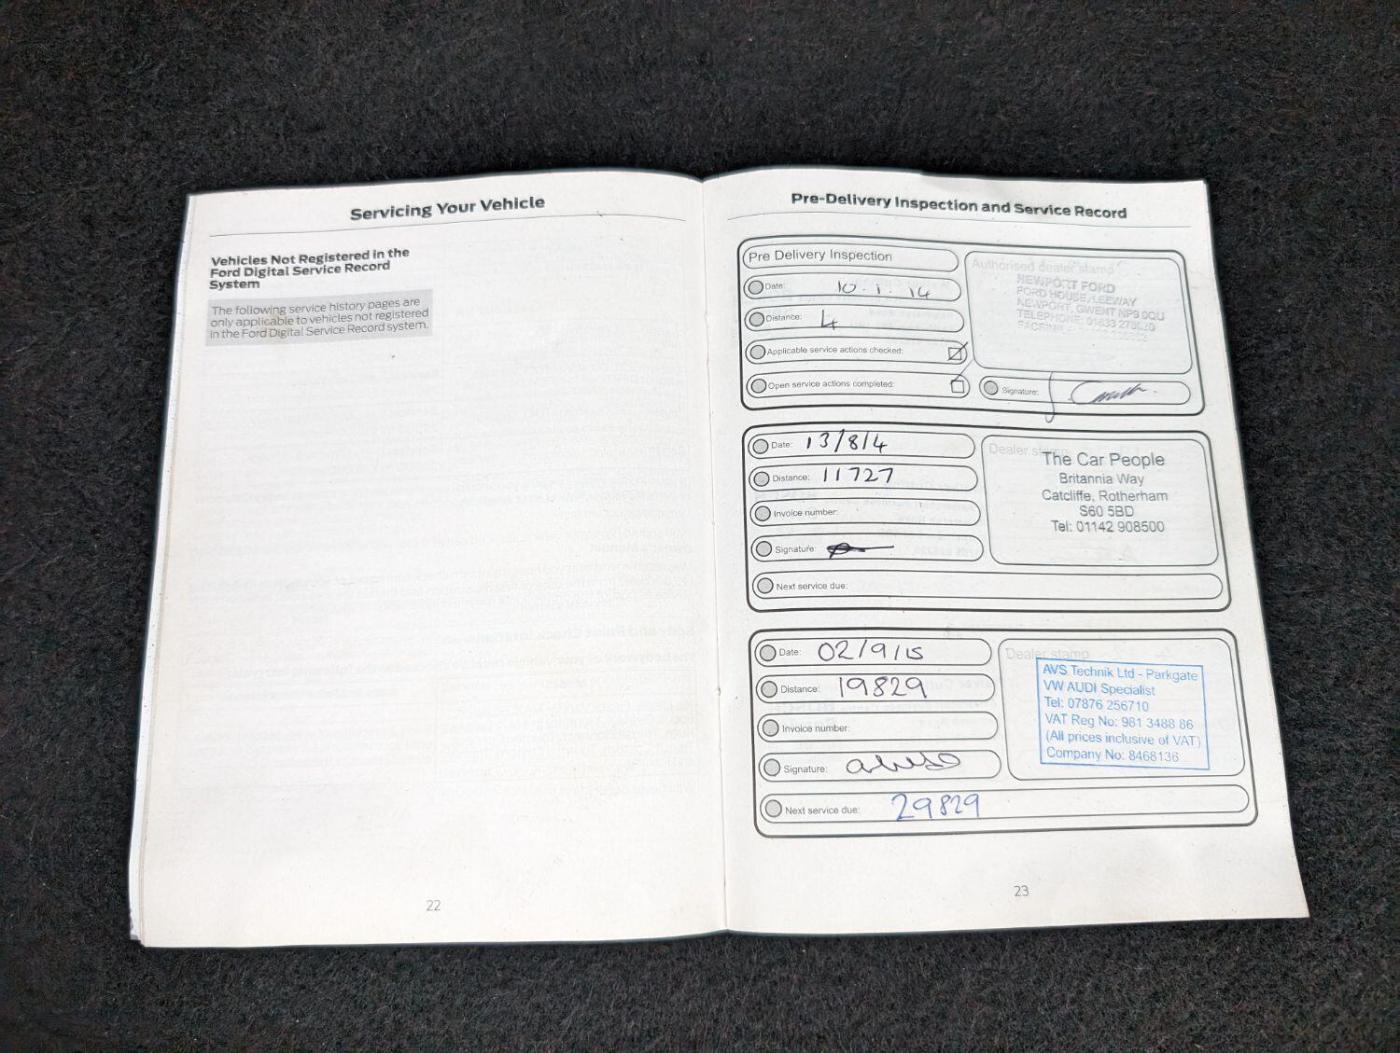 Servicing Your Vehicle
Vehicles Not Registered in the
Ford Digital Service Record
System
The following service history pages are
only applicable to vehicles not registered
in the Ford Digital Service Record system.
22
Pre-Delivery Inspection and Service Record
Pre Delivery Inspection
Date: 10.1.14
Distance: 4
Applicable service actions checked:
Open service actions completed:
Authorised dealer stamp
NEWPORT FORD
FORD HOUSE, LEEWAY
NEWPORT, GWENT NP9 0QU
TELEPHONE: 01633
Signature:
Date: 13/8/4
Distance: 11727
Invoice number:
Signature:
Next service due:
Dealer stamp
The Car People
Britannia Way
Catcliffe, Rotherham
S60 5BD
Tel: 01142 908500
Date: 02/9/15
Distance: 19829
Invoice number:
Signature:
Next service due: 29829
Dealer stamp
AVS Technik Ltd - Parkgate
VW AUDI Specialist
Tel: 07876 256710
VAT Reg No: 981 3488 86
(All prices inclusive of VAT)
Company No: 8468136
23